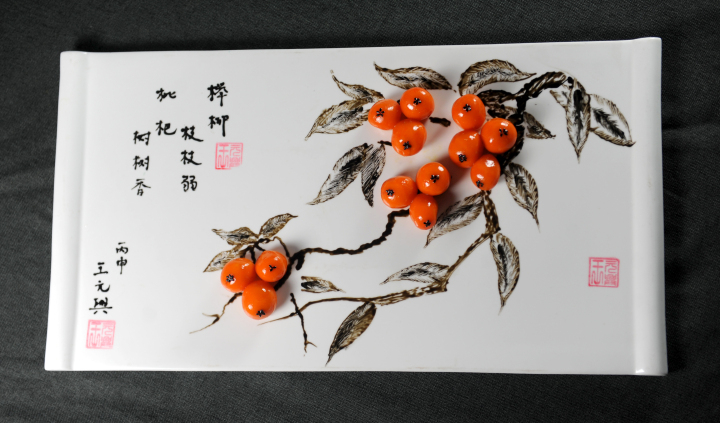 榉柳
枝枝弱
枇杷
树树香
丙申
王元興